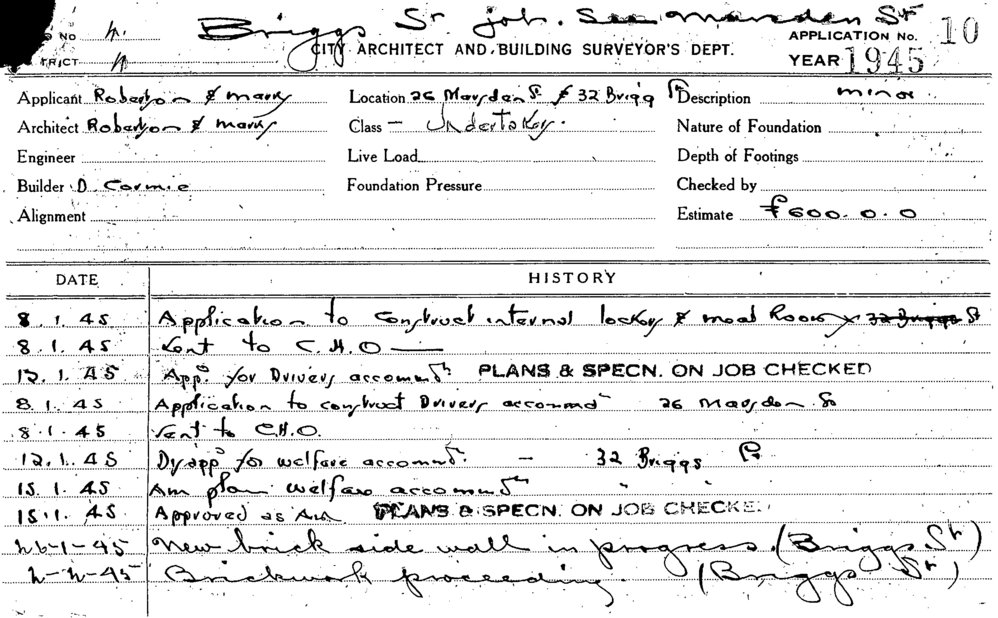 Briggs St job. See Marsden St
NO 4.
CITY ARCHITECT AND BUILDING SURVEYOR'S DEPT.
APPLICATION No. 10
TRICT
YEAR 1945
Applicant Robertson & Marks Location 26 Marsden St & 32 Briggs St Description minor
Architect Robertson & Marks Class – Undertaker. Nature of Foundation
Engineer Live Load Depth of Footings
Builder D. Cormie Foundation Pressure Checked by
Alignment Estimate £600.0.0
DATE HISTORY
8.1.45 Application to Construct internal lockers & meal Rooms 32 Briggs St
8.1.45 Sent to C.H.O —
12.1.45 Appd for Drivers accommdtn PLANS & SPECN. ON JOB CHECKED
8.1.45 Application to construct Drivers accommdtn 26 Marsden St
8.1.45 Sent to C.H.O.
12.1.45 Disappd for welfare accommdtn – 32 Briggs St
15.1.45 Am plan welfare accommdtn " "
15.1.45 Approved as Am PLANS & SPECN. ON JOB CHECKED
26-1-45 New brick side wall in progress. (Briggs St)
2-2-45 Brickwork proceeding. (Briggs St)